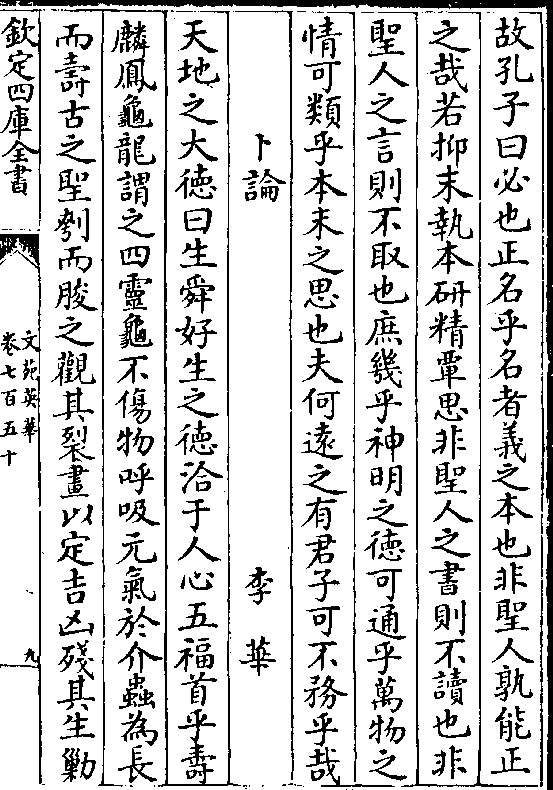 故孔子曰必也正名乎名者義之本也非聖人孰能正
之哉若抑末執本研精覃思非聖人之書則不讀也非
聖人之言則不取也庶幾乎神明之德可通乎萬物之
情可類乎本末之思也夫何遠之有君子可不務乎哉
卜論 李華
天地之大德曰生舜好生之德洽于人心五福首乎壽
麟鳳龜龍謂之四靈龜不傷物呼吸元氣於介蟲為長
而壽古之聖刳而朘之觀其裂畫以定吉凶殘其生勦
欽定四庫全書
文苑英華
卷七百五十
九